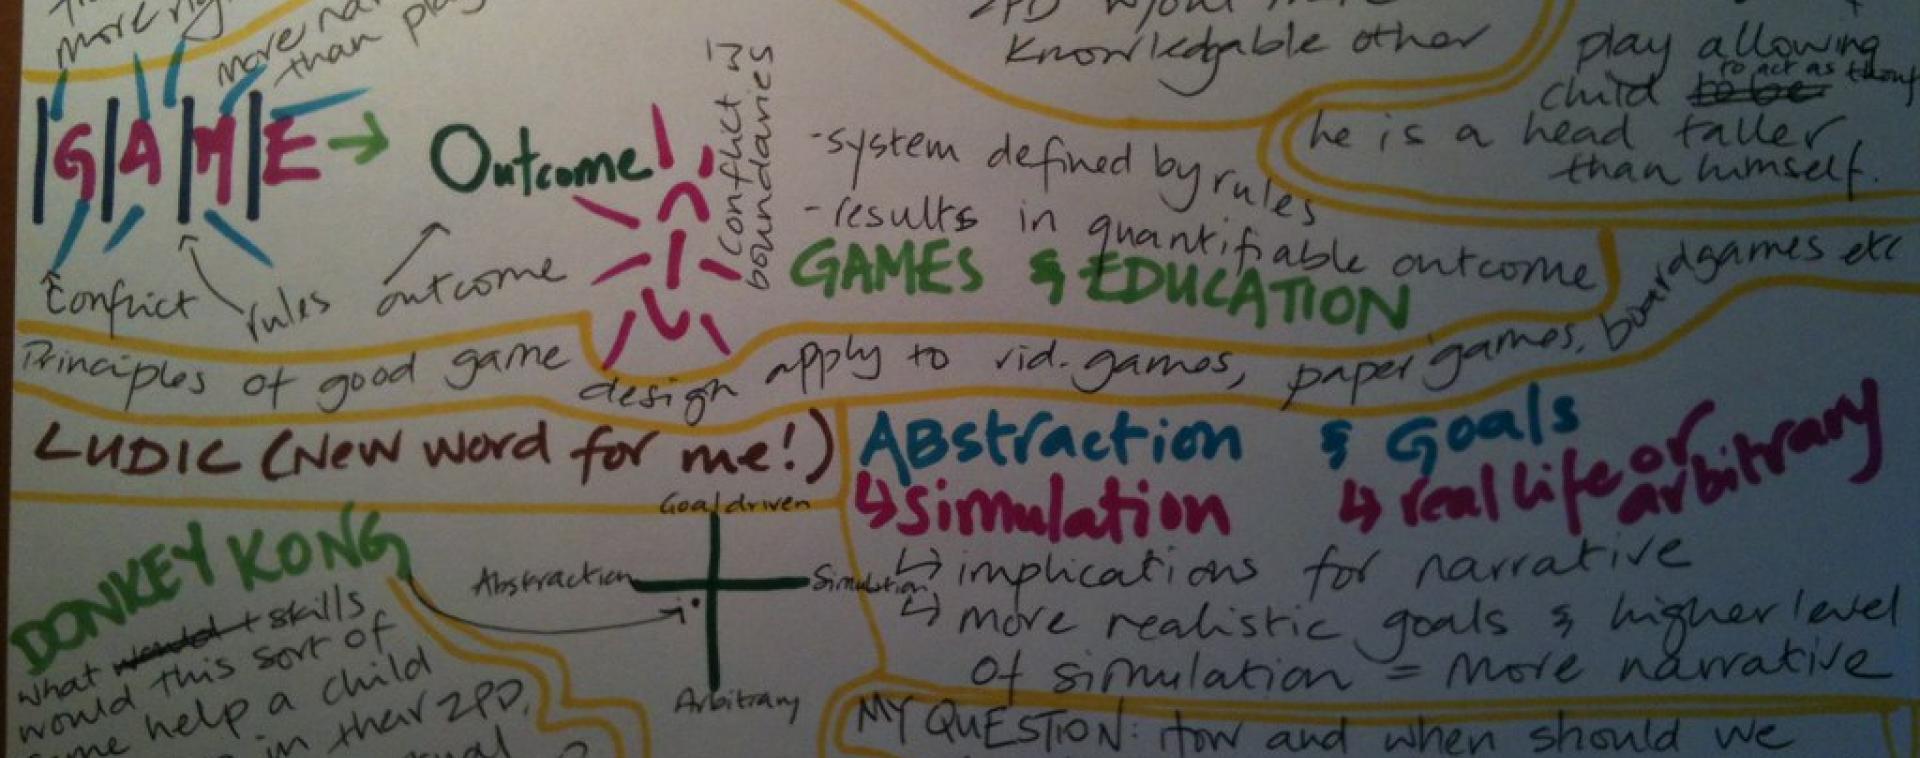 more
more
than
ZPD w/out more
knowledgable other
play allowing
child to be to act as though
he is a head taller
than himself.
GAME → Outcome!
conflict
rules
outcome
conflict w/
boundaries
-system defined by rules
-results in quantifiable outcome
GAMES & EDUCATION
Principles of good game design apply to vid. games, paper games, boardgames etc
LUDIC (New word for me!)
DONKEY KONG
what would + skills
would this sort of
help a child
in their ZPD,
Goal driven
Abstraction
Simulation
Arbitrary
ABstraction & Goals
↳ simulation ↳ real life or arbitrary
↳ implications for narrative
↳ more realistic goals & higher level
of simulation = more narrative
MY QUESTION: How and when should we